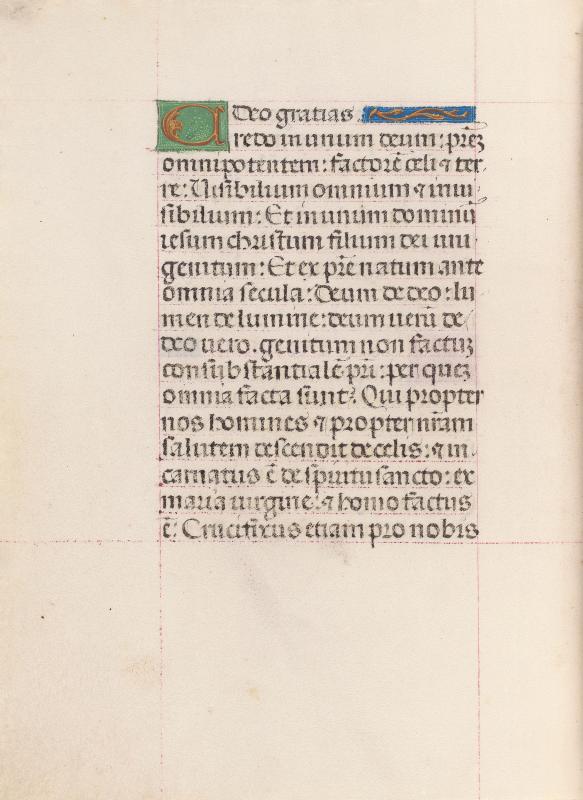 Deo gratias
Credo in unum deum: prẽȝ
omnipotentem: factorẽ celi ⁊ ter
re: Uisibilium omnium ⁊ inui
sibilium: Et in unum dominũ
iesum christum filium dei uni
genitum: Et ex prẽ natum ante
omnia secula: Deum de deo: lu
men de lumine: deum uerũ de
deo uero. genitum non factuȝ
consubstantialẽ prĩ: per queȝ
omnia facta sunt: Qui propter
nos homines ⁊ propter nr̃am
salutem descendit de celis: ⁊ in
carnatus ẽ de spiritu sancto: ex
maria uirgine: ⁊ homo factus
ẽ: Crucifixus etiam pro nobis